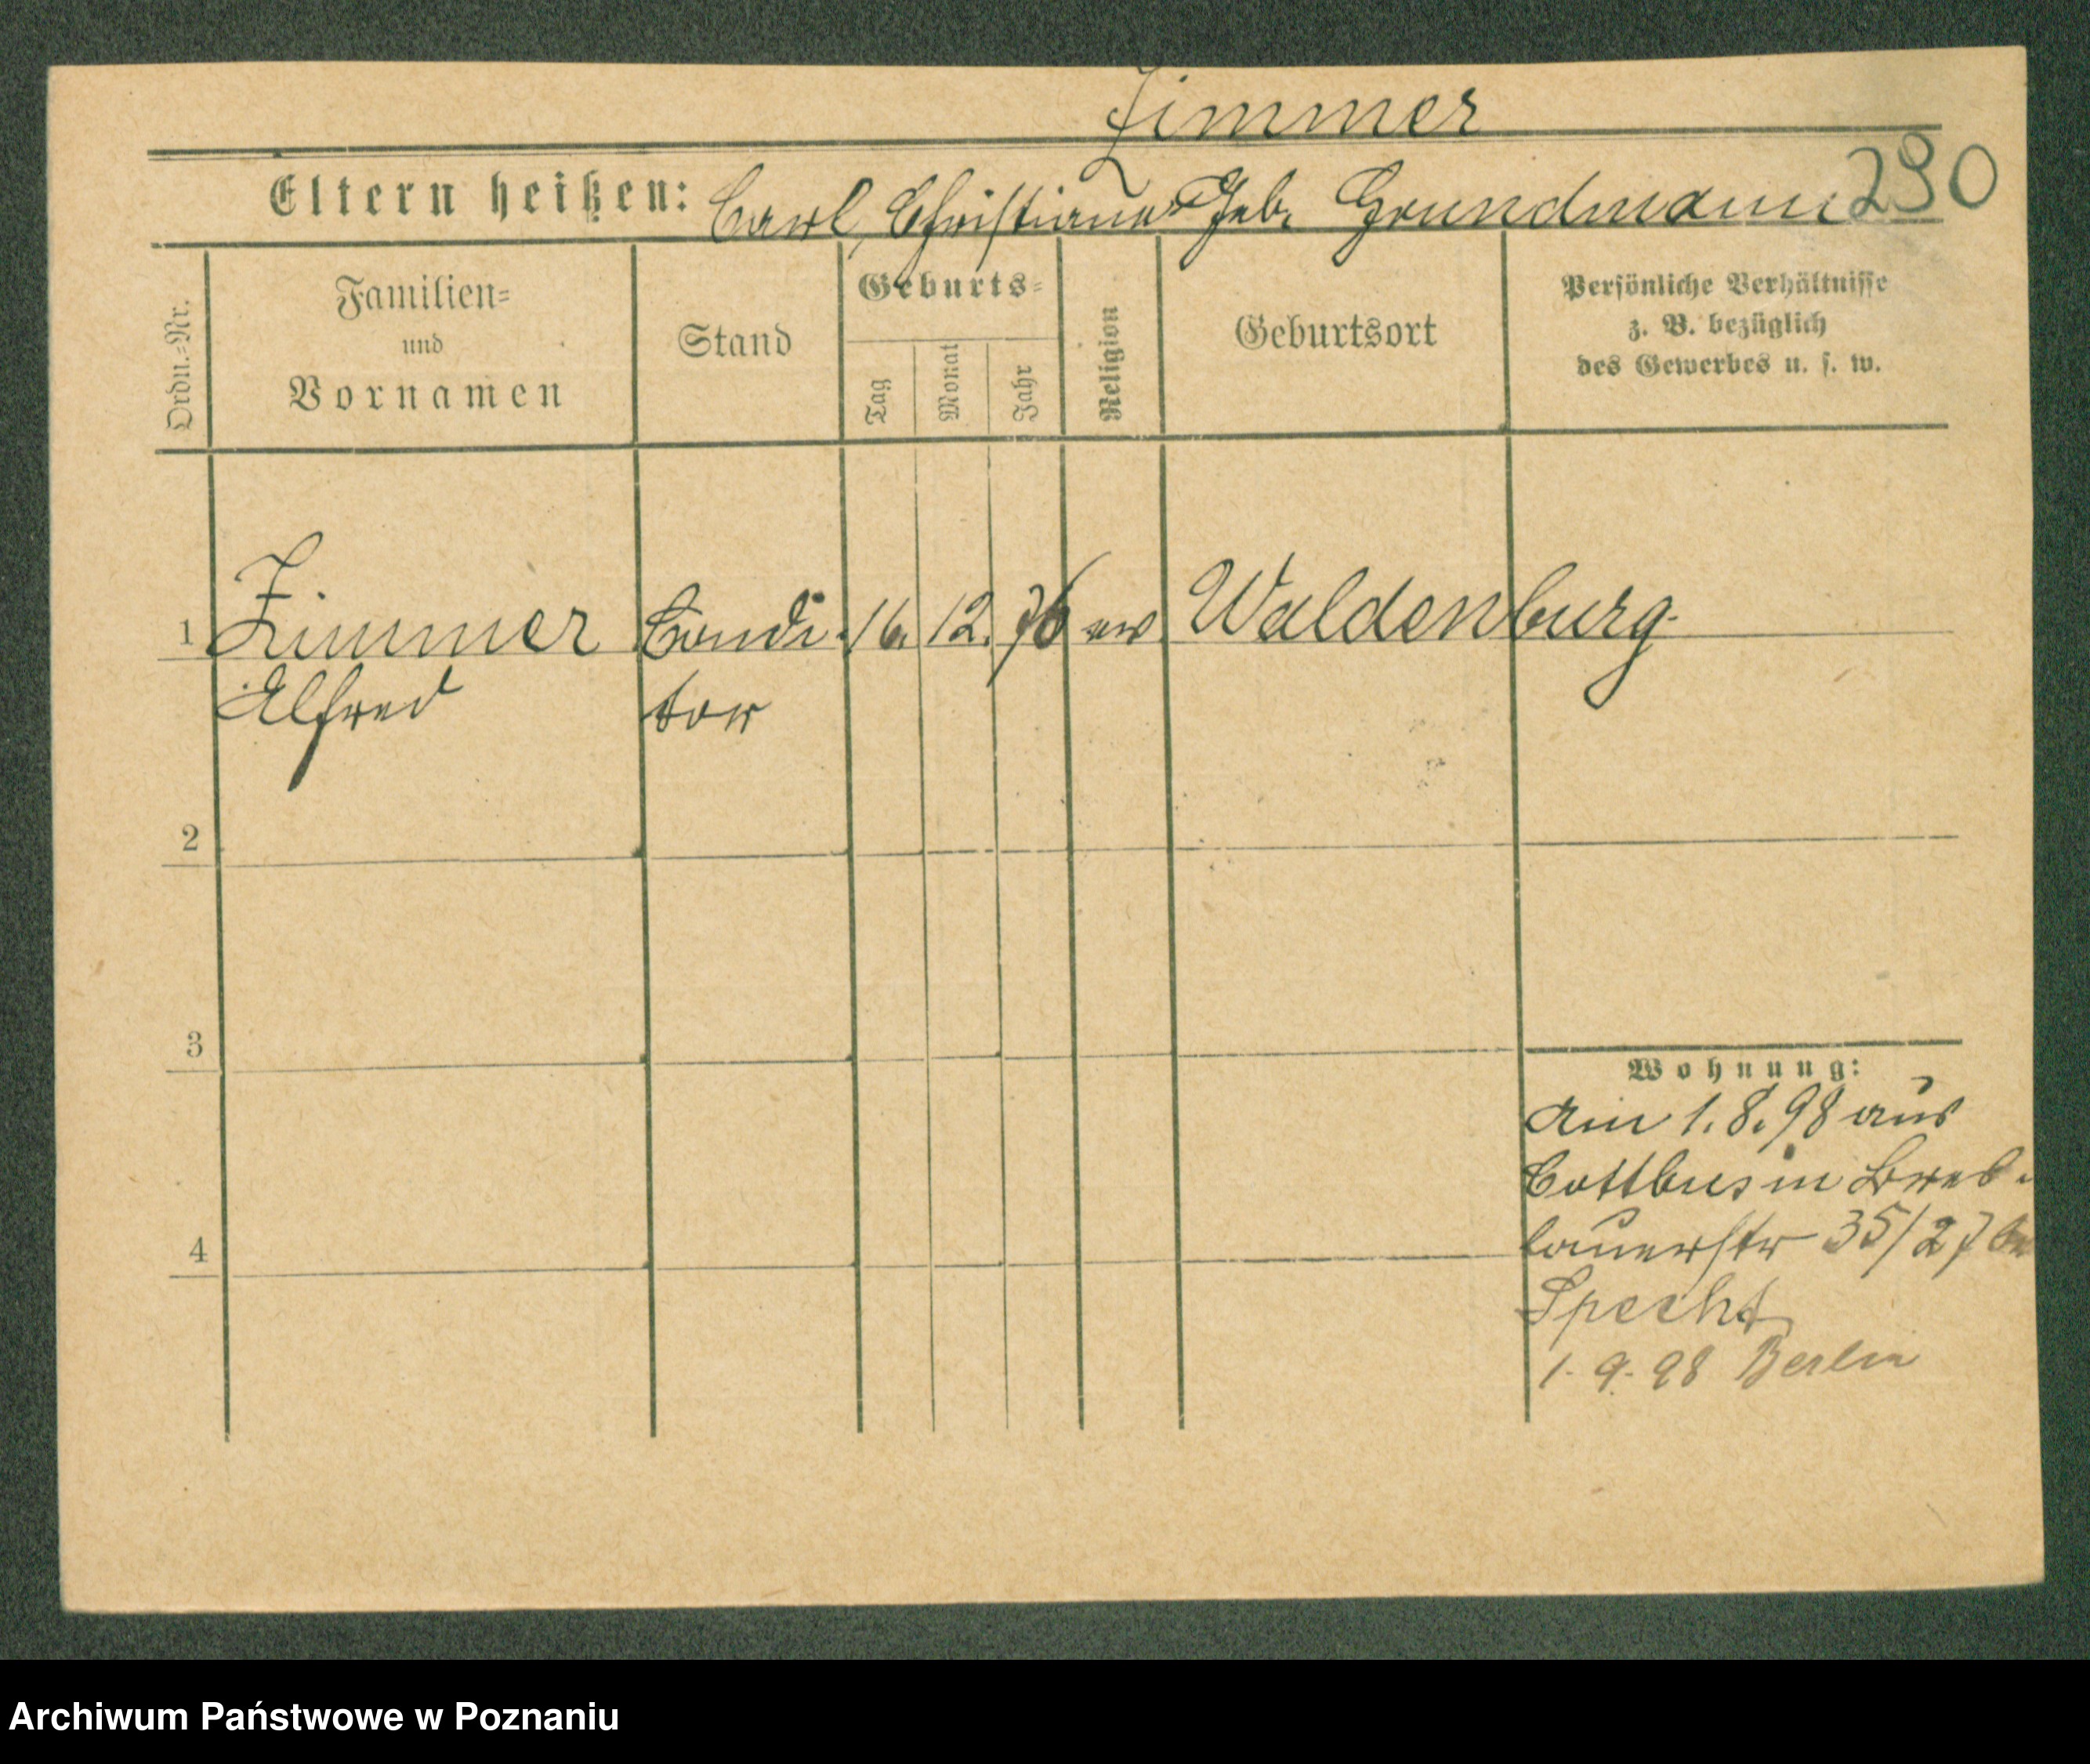 Zimmer
Eltern heißen: Carl, Christiane Geb. Grundmann 290
Ordn.-Nr.
Familien-
und
Vornamen
Stand
Geburts-
Tag
Monat
Jahr
Religion
Geburtsort
Persönliche Verhältnisse
z. B. bezüglich
des Gewerbes u. s. w.
1 Zimmer Condi- 16. 12. 76 ev. Waldenburg.
Alfred tor
2
3
Wohnung:
Am 1.8.98 aus
Cottbus in Bres-
4
lauerstr 35/27 bei
Specht
1.9.98 Berlin
Archiwum Państwowe w Poznaniu